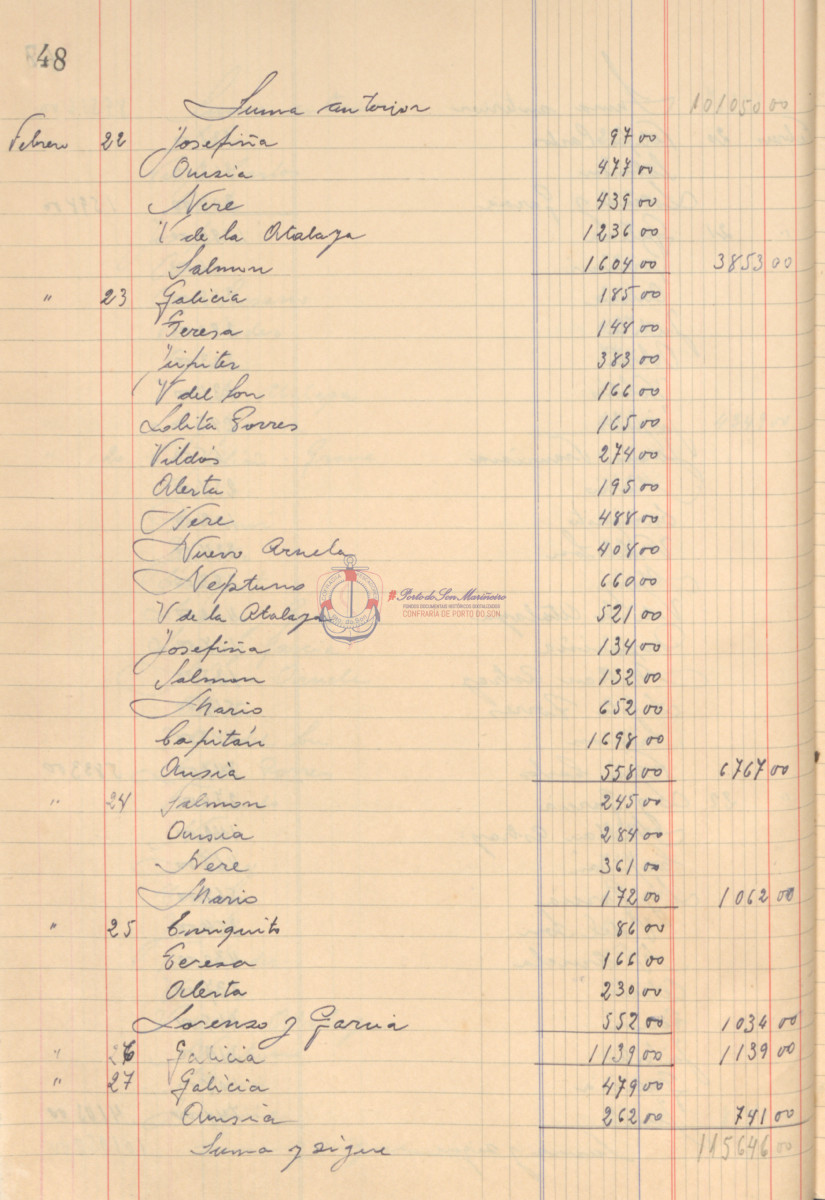 48
Suma anterior 101050 00
Febrero 22 Josefiña 97 00
Ousia 477 00
Nere 439 00
V de la Atalaya 1236 00
Salmon 1604 00 3853 00
" 23 Galicia 185 00
Teresa 148 00
Jupiter 383 00
V del Son 166 00
Lolita Torres 165 00
Vildós 274 00
Alerta 195 00
Nere 488 00
Nuevo Arnela 408 00
Neptuno 660 00
V de la Atalaya 521 00
Josefiña 134 00
Salmon 132 00
Mario 652 00
Capitán 1698 00
Ousia 558 00 6767 00
" 24 Salmon 245 00
Ousia 284 00
Nere 361 00
Mario 172 00 1062 00
" 25 Enriquito 86 00
Teresa 166 00
Alerta 230 00
Lorenzo y Garcia 552 00 1034 00
" 26 Galicia 1139 00 1139 00
" 27 Galicia 479 00
Ousia 262 00 741 00
Suma y sigue 115646 00
Porto do Son Mariñeiro
FONDOS DOCUMENTAIS HISTÓRICOS DIXITALIZADOS
CONFRARIA DE PORTO DO SON